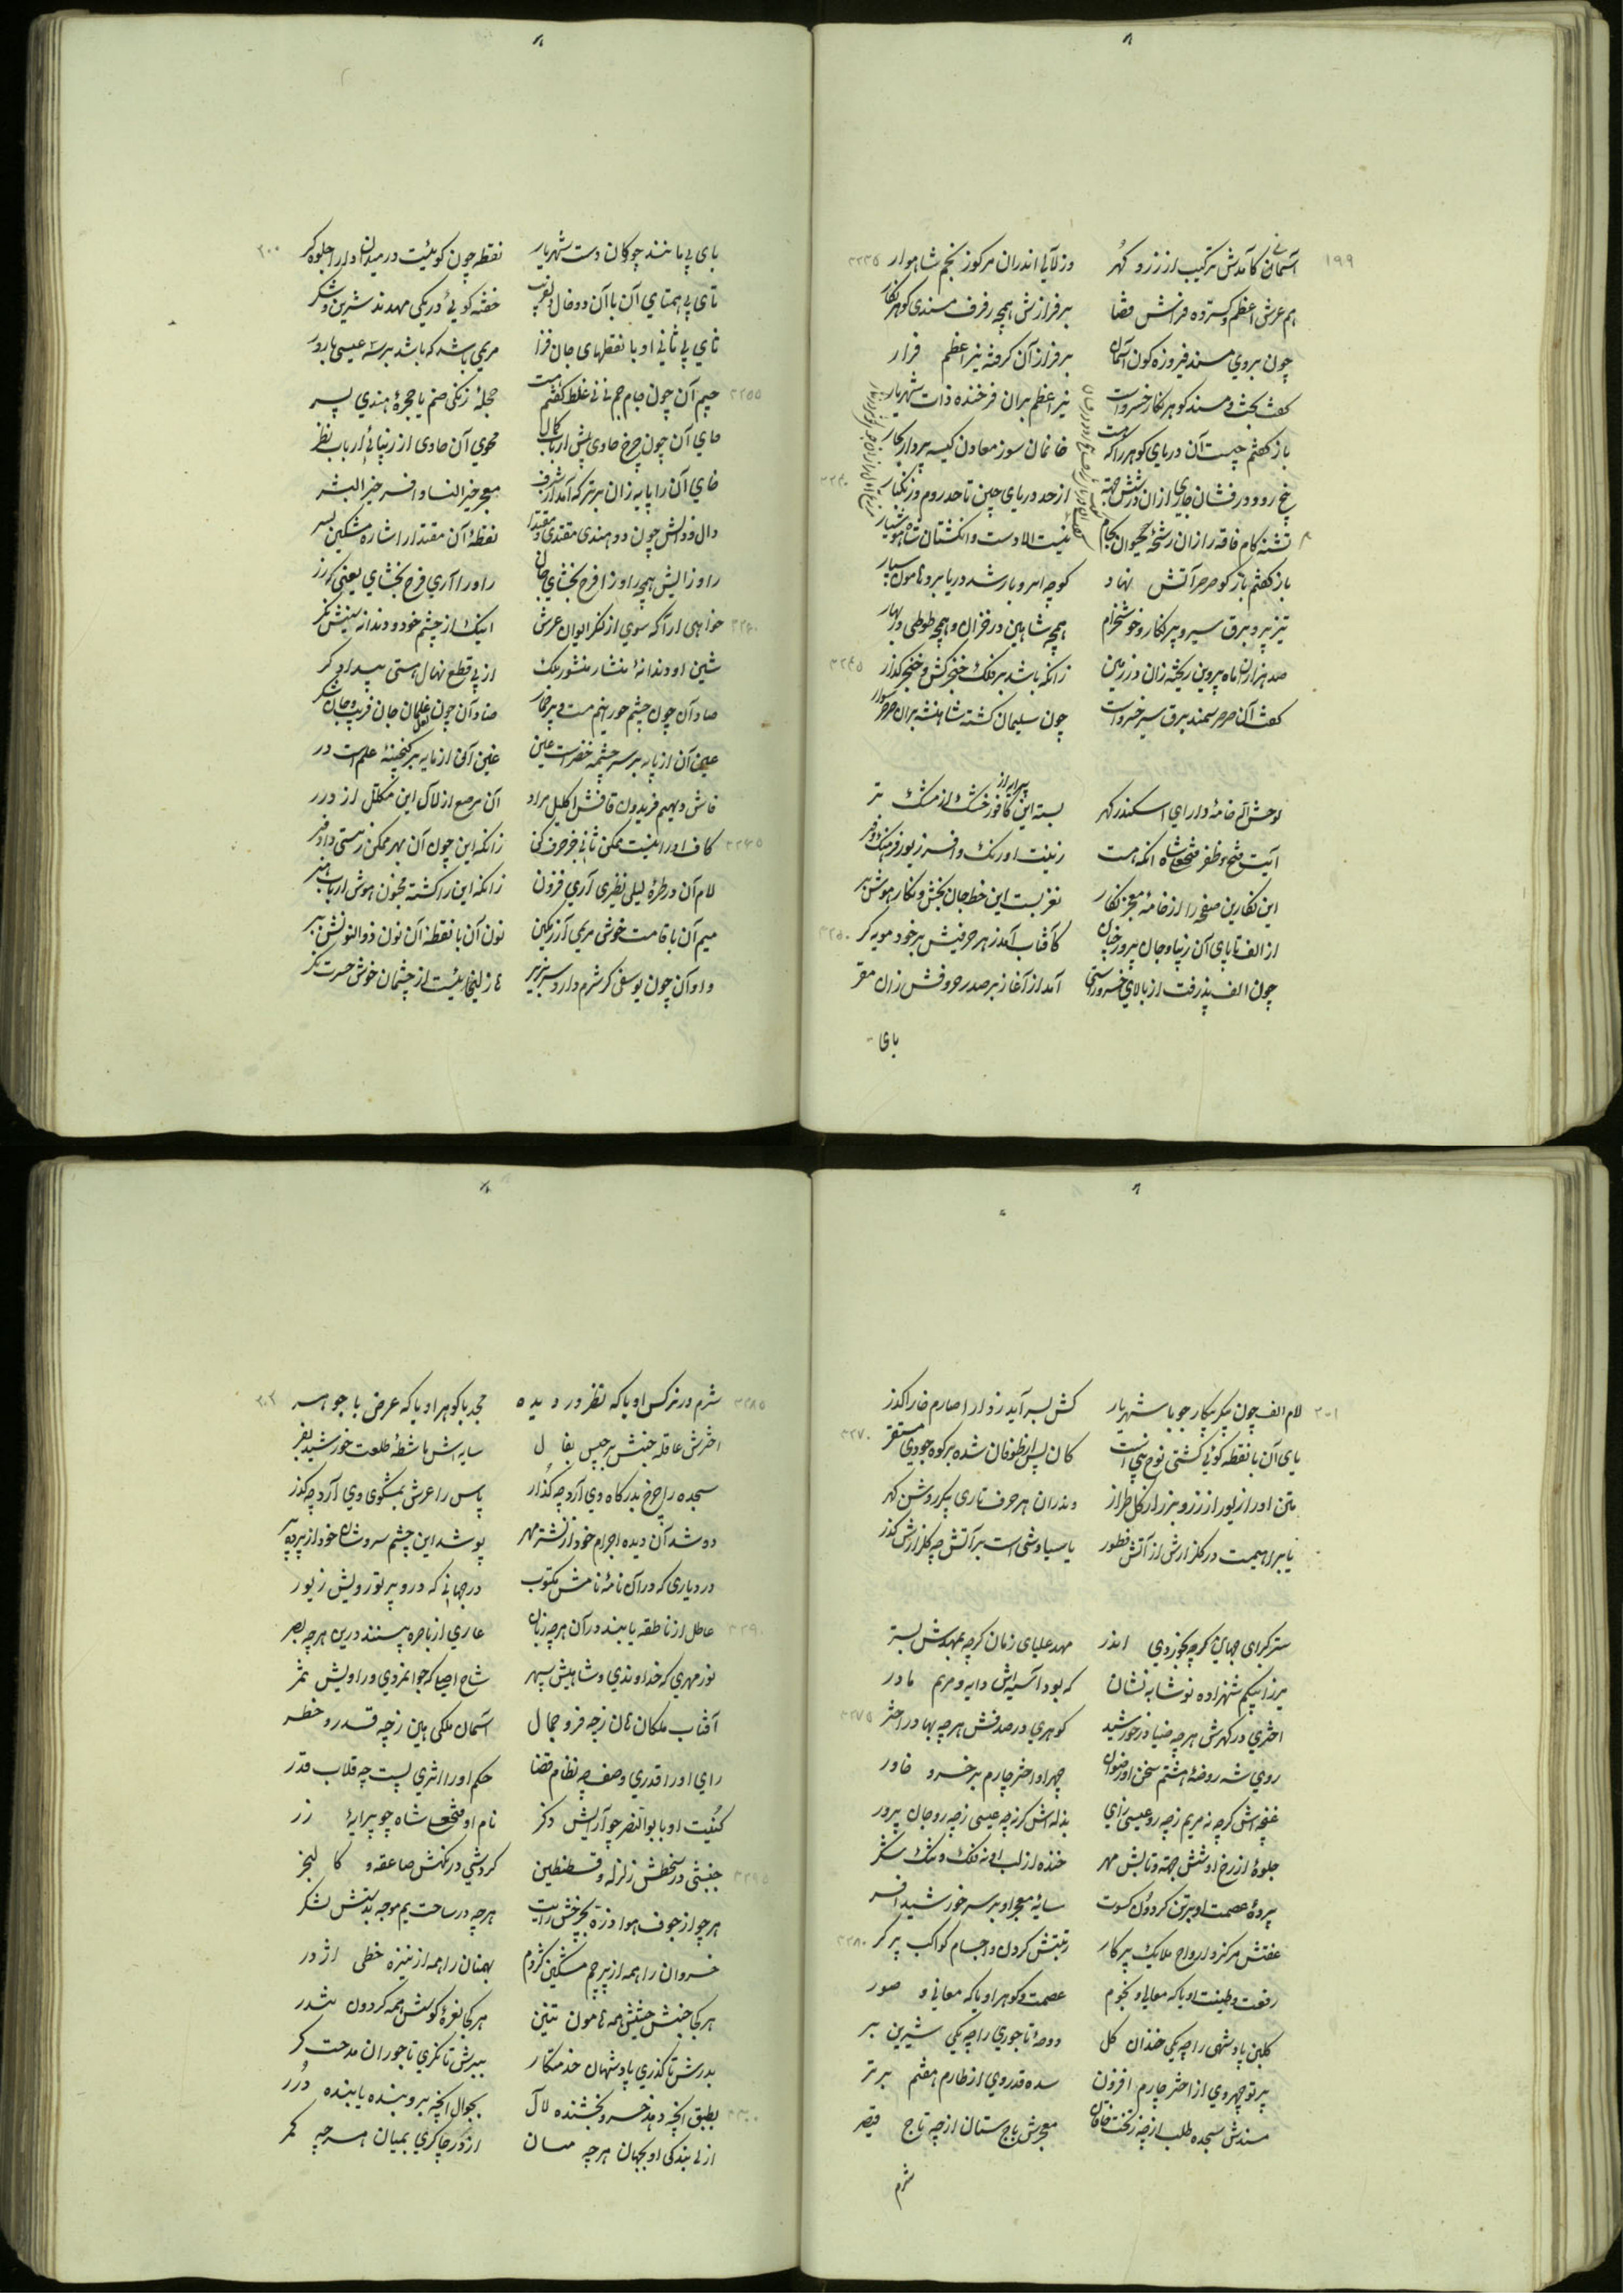 ۱۹۹
آسمانی کآمدش ترکیب از زر و گهر وز لآلی اندران مرکوز نجم شاهوار ۳۲۳۵
هم عرش اعظم گسترده فراش قضا بر فرازش همچو رفرف مسندی گوهر نگار
چون بروی مسند فیروزه کون آسمان بر فراز آن گرفته نیر اعظم قرار
گفت بخت و مسند گوهر نگار خسرواست نیر اعظم بران فرخنده ذات شهریار
باز گفتم چیست آن دریای گوهرزا که هست خانمان سوز معادن کیسه پرداز بحار
پنج رود درفشان جاری ازان در شش جهة از حد دریای چین تا حد روم و زنگبار ۳۲۴۰
تشنه کام فاقه را زان رشحهٔ حیوان بکام نیست الا دست و انگشتان شاه هوشیار
باز گفتم باز کو صرصر آتش نهاد کوچه ابر و باد شد دریا بر و هامون سپار
تیز پر و برق سیر و پر نگار و خوشخرام همچه شاهین در خزان و همچه طوطی در بهار
صد هزاران ماه پروین ریخته زان در زمین زانکه باشد بر فلک خنجر کش و خنجر گذار ۳۲۴۵
گفت آن صرصر سمند برق سیر خسرواست چون سلیمان گشته شاهنشه بران صرصر سوار
لوحش الله خامهٔ دارای اسکندر گهر بسته این پیرایه از کافور خشک از مشک تر
آیت فتح و ظفر فتحعلیشاه آنکه هست زینت اورنگ و افسر زیور فرهنگ و فر
این نگارین صفحه را از خامهٔ معجز نگار نغز بست این خط جان بخش و نگار هوش بر
از الف تا یای آن زیبا و جان پرور چنان کآفتاب آمد ز هر حرفیش بر خود مویه گر ۳۲۵۰
چون الف پذرفت از بالای خسرو راستی آمد از آغاز بر صدر حروفش زان مقر
بای
۲۰۰
بای بی مانند چوگان دست شهریار نقطه چون گوئیست در میدان ادوار جلوه گر
تای بی همتای آن با آن دو خال دلفریب خفته گوئی در یکی مهدند شیرین و شکر
ثای بی ثانی او با نقطهای جان فزا مریمی باشد که باشد بر سه عیسی بارور
جیم آن چون جام جم نی نی غلط گفتم که هست حجلهٔ زنگی صنم یا حجرهٔ هندی پسر ۳۲۵۵
حای آن چون چرخ حاوی پیش ارباب کمال محوی آن حاوی از زیبائی ارباب نظر
خای آن را پایه زان برتر که آمد از شرف معجر خیر النسا و افسر خیر البشر
دال و ذالش چون دو هندی مقتدی و مقتدا نقطهٔ آن مقتدا را شاره مشکین بسر
را و زایش همچه را و زا فرح بخشای جان را و را آری فرح بخشای یعنی کرز
خواهی ار آگه سوی از کنگر ایوان عرش اینک از چشم خرد و دندانهٔ سینش نگر ۳۲۶۰
شین او دندانهٔ منشار منشور ملک از پی قطع نهال هستی بیدادگر
صاد آن چون چشم حور نیم مست و پر خمار ضاد آن چون لعل غلمان جان فریب و جان شکر
عین آن از پایه بر سرچشمهٔ خضراست عین غین آن از مایه بر گنجینهٔ علم است در
فاش دیهیم فریدون قافش اکلیل مراد آن مرصع از لآل این مکلل از درر
کاف اورا نیست ممکن ثانی خر حرف کن زانکه این چون آن بهر ممکن ز هستی داد فر ۳۲۶۵
لام آن در طرهٔ لیلی نظری آری فزون زانکه این را گشته مجنون هوش ارباب هنر
میم آن با قامت خوشی مریمی آزرمگین نون آن با نقطهٔ آن نون ذوالنونش ببر
واو آن چون یوسفی کز شرم دارد سر بزیر ها زلیخائیست از چشمان خوش حسرت نگر
۲۰۱
لام الف چون پیکر پیکار جو با شهریار کش بسر آید ز وارا صارم خارا گذر
یای آن با نقطه گوئی کشتی نوح نبی است کان پس از طوفان شده بر کوه جودی مستقر ۳۲۷۰
متن او را زیور از زر و بزر از کل طراز وندران هر حرف تاری پیکر روشن گهر
یا براهیمست در گلزارش از آتش فطور یا سیاوشی است بر آتش چه گلزارش گذر
ستر کبرای جهان گرچه بجز وی اندر مهد علیای زمان گرچه بمهدش بستر
میرزا بیگم شهزادهٔ نوشابه نشان که بود آسیه اش دایه و مریم مادر
اختری در گهرش هر چه ضیا در خورشید گوهری در صدفش هر چه بها در اختر ۳۲۷۵
روی شه روضهٔ هشتم سخن او رضوان چهر او اختر چارم بر خسرو خاور
غنچه اش گرچه نه مریم زچه رو عیسی زای بذله اش گر نه چه عیسی زچه رو جان پرور
جلوهٔ از رخ او شش جهة و تابش مهر خنده از لب او نه فلک و تنگ شکر
پردهٔ عصمت او بر تن گردون کسوت سایهٔ معجر او بر سر خورشید افسر
عفتش مرکز و ارواح ملایک پرگار رتبتش گردون و اجسام کواکب پر گر ۳۲۸۰
رفعت و طینت او یا که معالی و نجوم عصمت و گوهر او یا که معانی و صور
گلبن پادشهی را چه یکی خندان گل دوحهٔ تاجوری را چه یکی شیرین بر
پرتو چهر وی از اختر چارم افزون سده قدر وی از طارم هفتم برتر
مسندش سجده طلب از چه ز تخت خاقان معجرش باج ستان از چه ز تاج قیصر
شرم
۲۰۲
شرم در نرگس او یا که نظر در دیده مجد با گوهر او یا که عرض با جوهر ۳۲۸۵
اخترش عاقله جنبش برجیس بفال سایه رش ماشطهٔ طلعت خورشید بفر
سجده را چرخ بدرگاه وی آرد چه گذار پاس را عرش بمشکوی وی آرد چه گذر
دوشد آن دیده اجرام خود از نشتر مهر پوشد این چشم سروشان خود از پرده پر
در دیاری که در آن نامهٔ نامش مکتوب در جهانی که درو پرتو رویش زیور
عاطل از ناطقه یابند در آن هر چه زبان عاری از باصره بینند درین هر چه بصر ۳۲۹۰
نور مهری که خداوندی و شاهیش سپهر شاخ اصلی که جوانمردی و رادیش ثمر
آفتاب ملکان هان ز چه فر و جمال آسمان ملکی هین ز چه قدر و خطر
رای او را قدری وصف چه نظام قضا حکم او را اثری پست چه قلاب قدر
کنیت او با بو النصر چو آرایش ذکر نام او فتحعلی شاه چو پیرایهٔ زر
جنبشی در سخطش زلزله و قسطنطین گردشی در نگهش صاعقه و کالنجر ۳۲۹۵
هر چو از جوف هوا ذره بچرخش رایت هر چه در ساحت یم موجه بدشتش لشکر
خسروان را همه از پرچم مشکین کژدم بهمنان را همه از نیزه خطی اژدر
هر کجا جنبش جیشش همه هامون تنین هر کجا نعرهٔ کوسش همه گردون تندر
بدرش تا گذری پادشهان خدمتگار ببرش تا نگری تاجوران مدحت گر
بطبق آنچه دهد خسرو بخشنده لآل بجوال آنچه برد بنده یابنده درر ۳۳۰۰
از پی بندگی او بجهان هر چه میان از در چاکری بمیان هر چه کمر